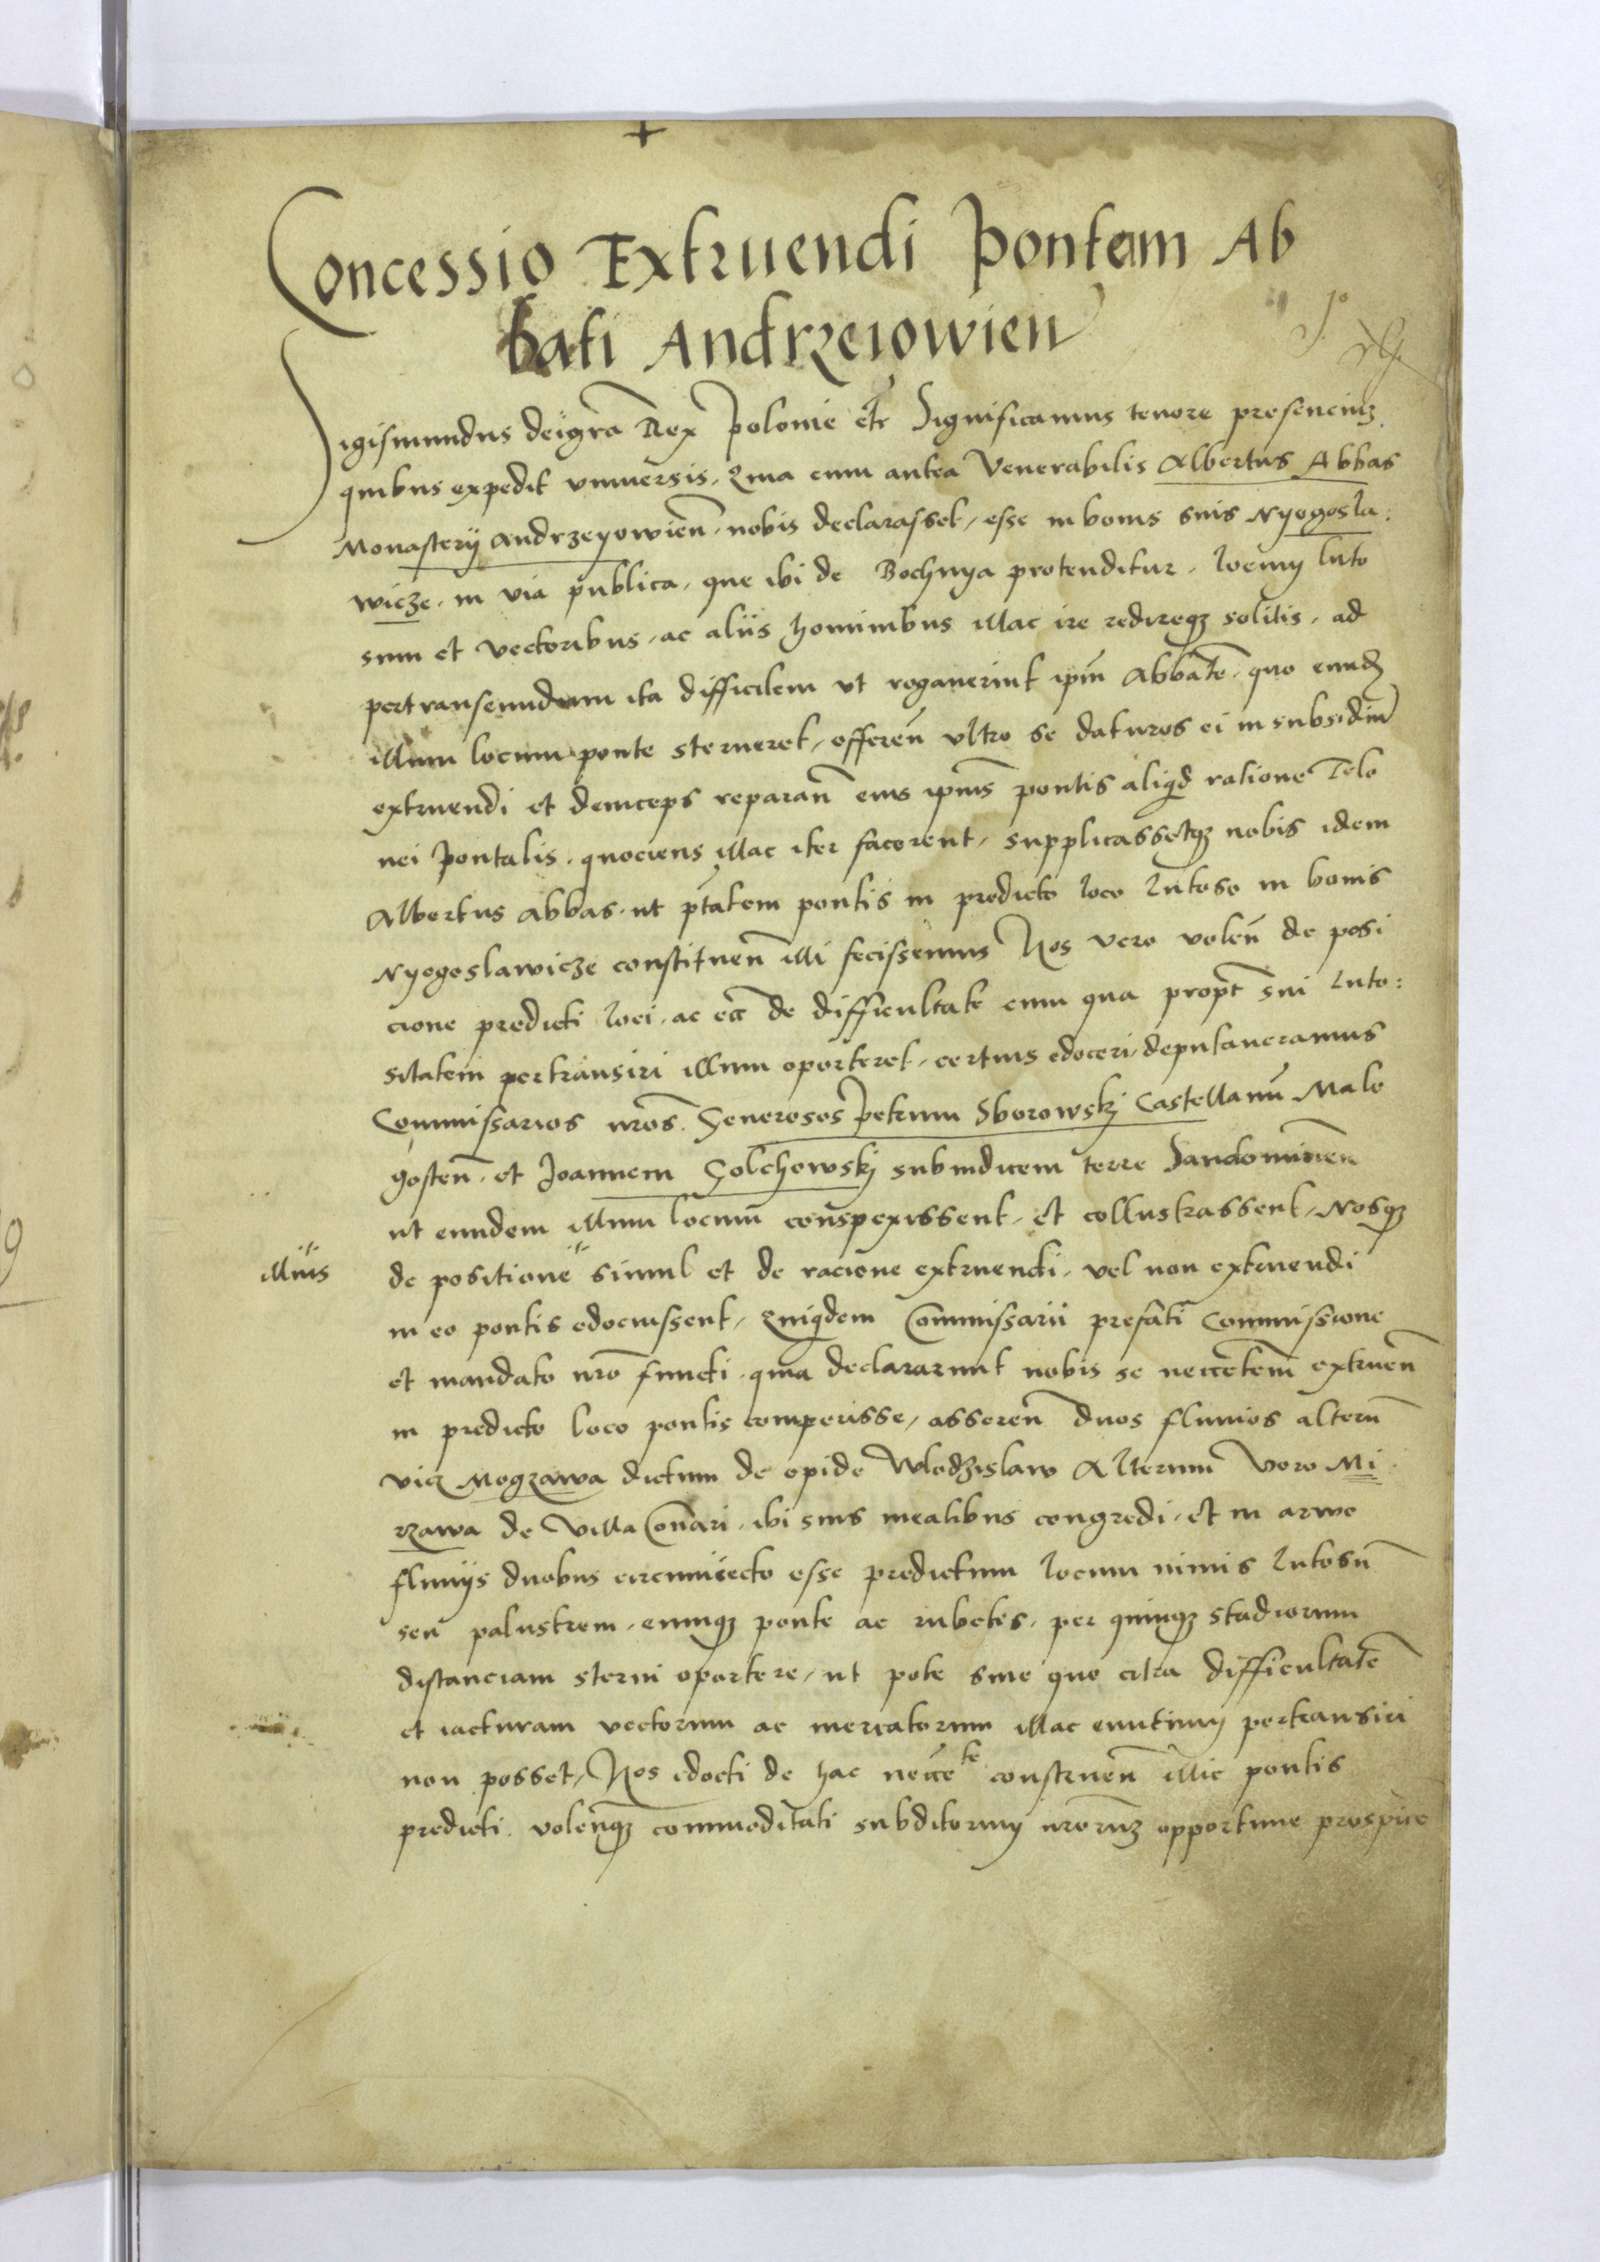 Concessio Extruendi Pontem Ab
bati Andrzeiowien
Sigismundus dei gra Rex Polonie etc Significamus tenore presencium
quibus expedit vniuersis, Quia cum antea Venerabilis Albertus Abbas
Monasterij Andrzeyowien̄ nobis declarasset, esse in bonis suis Nyogosla:
wicze, in via publica, que ibi de Bochnya protenditur, locum luto
sum et vectoribus, ac aliis hominibus illac ire redireqȝ solitis, ad
pertranseundum ita difficilem vt rogauerint ipm̄ Abbatē, quo eundȝ
illum locum ponte sterneret, offeren̄ vltro se daturos ei in subsidiū
extruendi et deinceps reparan̄ eius ipius pontis aliqd ratione Telo
nei Pontalis, quociens illac iter facerent, supplicassetqȝ nobis idem
Albertus Abbas, ut ptatem pontis in predicto loco lutoso in bonis
Nyogoslawicze constituen̄ illi fecissemus Nos vero volen̄ de posi
cione predicti loci, ac ecc̄ de difficultate cum qua propt̄ sui luto:
sitatem pertransiri illum oporteret, certius edoceri, deputaueramus
Commissarios nr̄os, Generosos Petrum Sborowskj Castellanū Malo
gosten̄, et Joannem Golchowskj subiudicem terre Sandomirien̄
ut eundem illum locum conspexissent, et collustrassent, Nosqȝ
illius
de positione simul et de racione extruendi, vel non extruendi
in eo pontis edocuissent, Quiqdem Commissarii prefati Commissione
et mandato nr̄o functi, quia declararunt nobis se neccetem extruen̄
in predicto loco pontis comperisse, asseren̄ duos fluuios alterū
vicȝ Mogzawa dictum de opido Wlodzislaw Alterum Vero Mi
rzawa de Villa Conari, ibi suis meatibus congredi, et in aruo
fluuijs duobus circumiecto esse predictum locum nimis lutosū
seu palustrem, eumqȝ ponte ac rubetis, per quinqȝ stadiorum
distanciam sterni oportere, ut pote sine quo citra difficultatē
et iacturam vectorum ac mercatorum illac euntium pertransiri
non posset, Nos edocti de hac necce te construen̄ illic pontis
predicti, volenqȝ commoditati subditorum nr̄orum opportune prospice